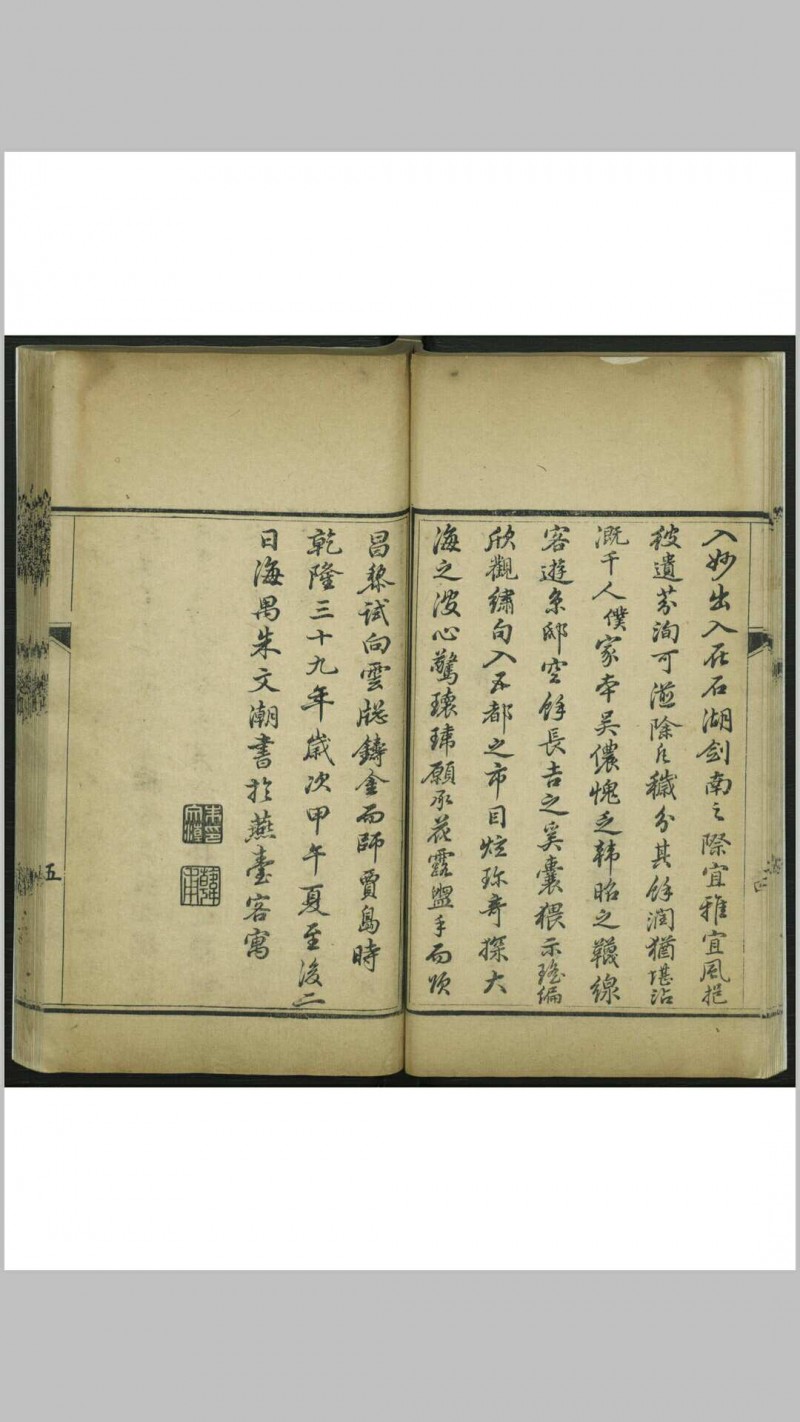 入妙出入在石湖劍南之際宜雅宜風挹
彼遺芬洵可滋除凡穢分其餘潤猶堪沾
溉千人僕家本吳儂愧乏韩昭之韈線
客遊京邸空餘長吉之奚囊猥示瑤編
欣觀繡句入五都之市目炫珍奇探大
海之波心驚瓌瑋願承花露盥手而頌
昌黎試向雲牕鑄金而師賈島時
乾隆三十九年歲次甲午夏至後二
日海禺朱文潮書於燕臺客寓
五